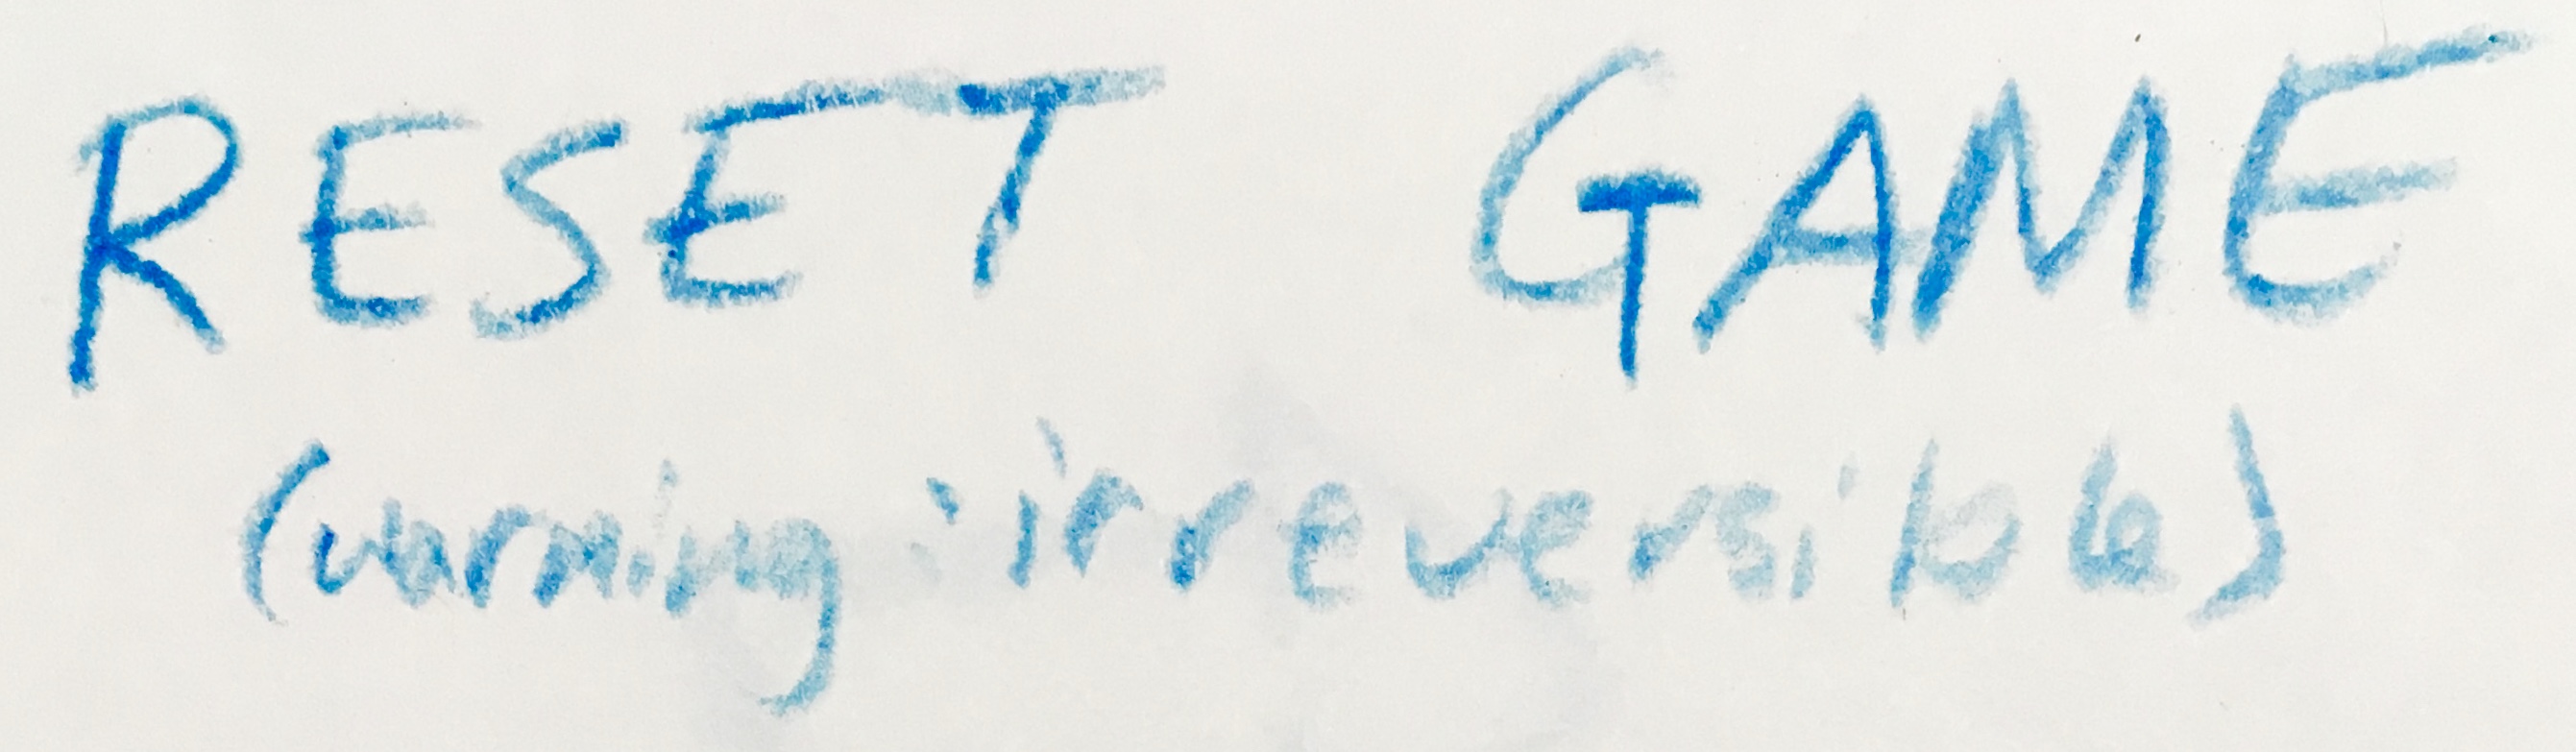 RESET GAME
(warning: irreversible)